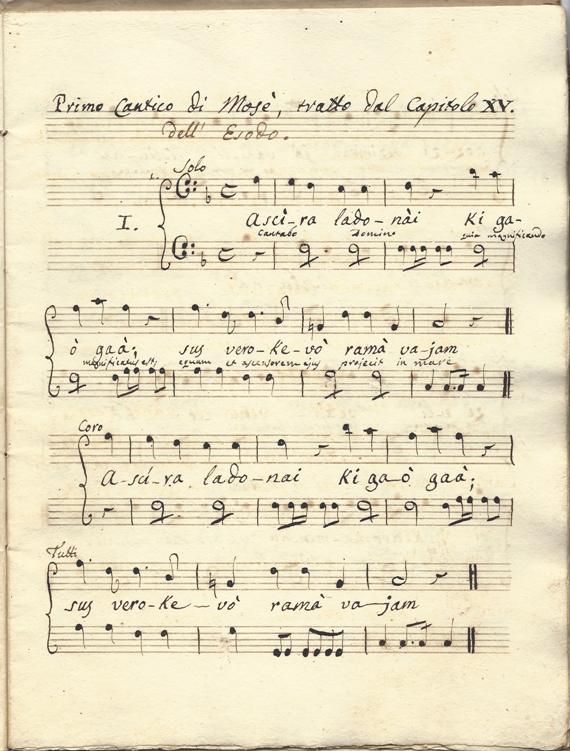 Primo Cantico di Mosè, tratto dal Capitolo XV.
dell' Esodo.
Solo
I.
Ascì-ra lado-nài Ki ga-
Cantabo Domino quia magnificando
ò gaà; sus vero-ke-vò ramà va-jam
magnificatus est; equum et ascensorem ejus projecit in mare
Coro
A-scí-ra lado-nai Ki ga-ò gaà;
Tutti
sus vero-ke-vò ramà va-jam